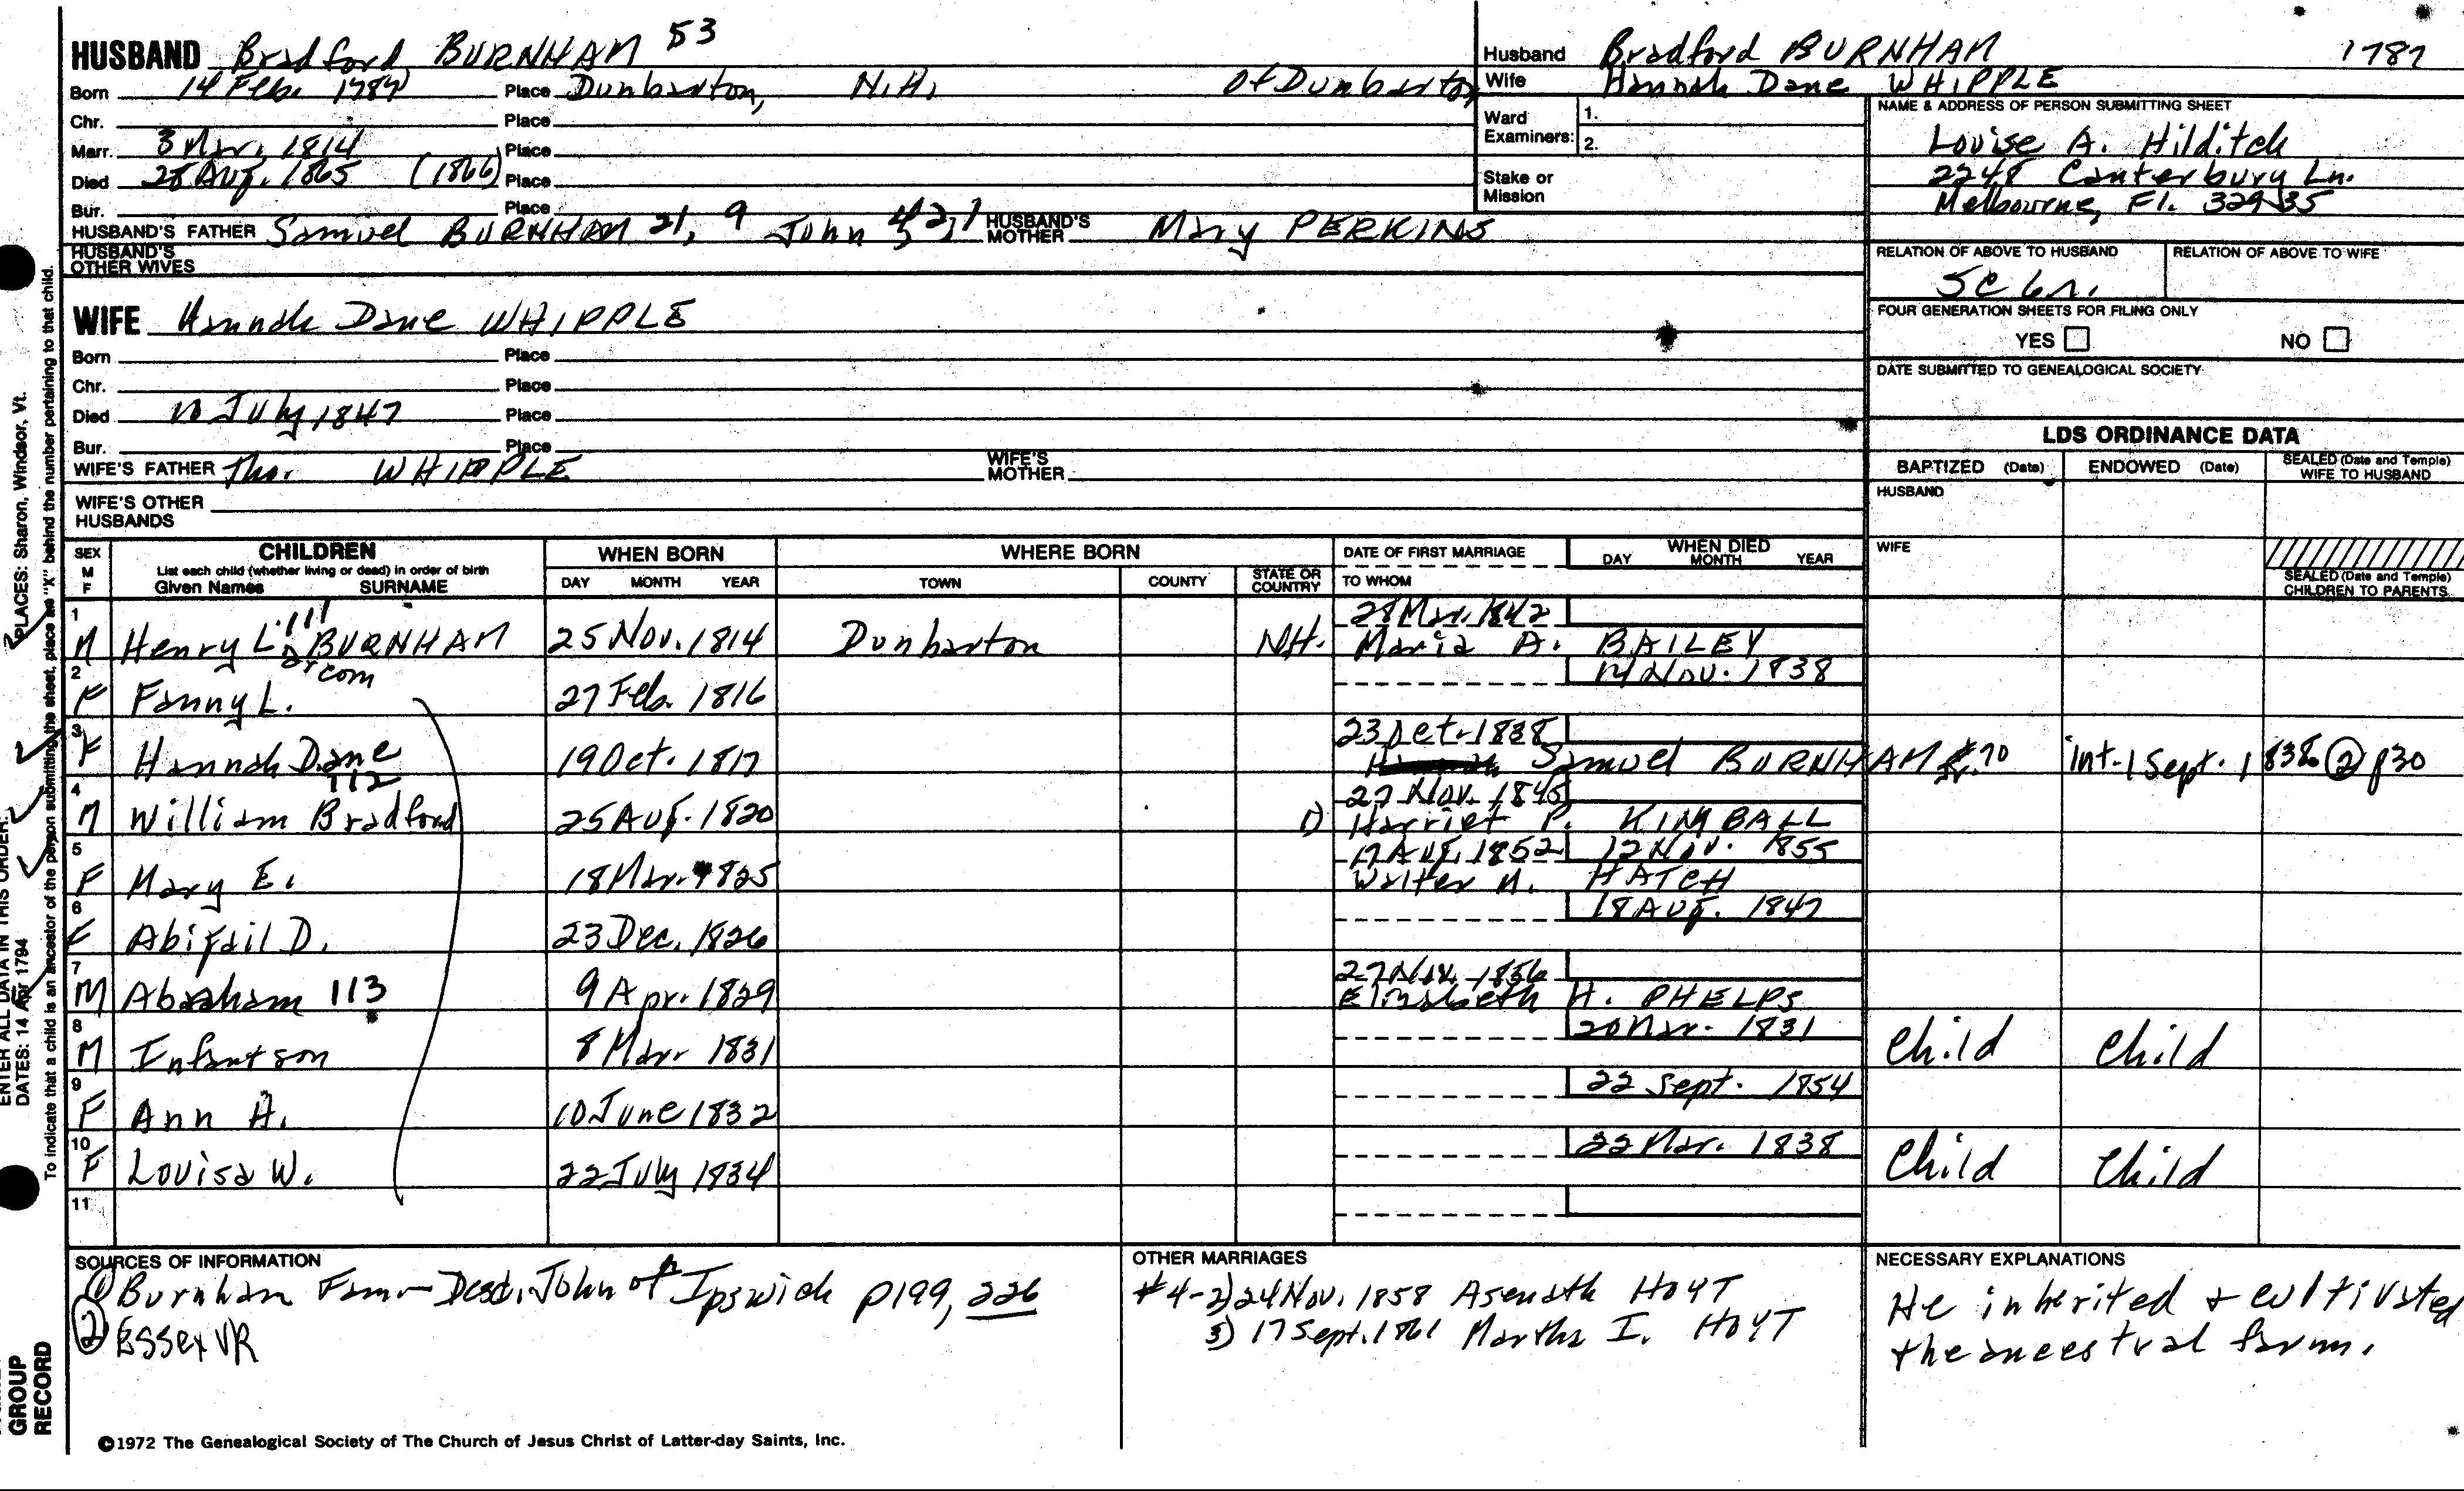 HUSBAND Bradford BURNHAM 53
Born 14 Feb. 1787 Place Dunbarton, N.H. of Dunbarton
Chr. Place
Marr. 3 Mar. 1814 Place
Died 28 Aug. 1865 (1866) Place
Bur. Place
HUSBAND'S FATHER Samuel BURNHAM 21, 9 John HUSBAND'S MOTHER Mary PERKINS
HUSBAND'S OTHER WIVES
WIFE Hannah Dane WHIPPLE
Born Place
Chr. Place
Died July 1847 Place
Bur. Place
WIFE'S FATHER Tho. WHIPPLE WIFE'S MOTHER
WIFE'S OTHER HUSBANDS
Husband Bradford BURNHAM 1787
Wife Hannah Dane WHIPPLE
Ward Examiners: 1.
2.
Stake or Mission
NAME & ADDRESS OF PERSON SUBMITTING SHEET
Louise A. Hilditch
2248 Canterbury Ln.
Melbourne, Fl. 32935
RELATION OF ABOVE TO HUSBAND RELATION OF ABOVE TO WIFE
5C 6r.
FOUR GENERATION SHEETS FOR FILING ONLY
YES NO
DATE SUBMITTED TO GENEALOGICAL SOCIETY
LDS ORDINANCE DATA
BAPTIZED (Date) ENDOWED (Date) SEALED (Date and Temple) WIFE TO HUSBAND
HUSBAND
WIFE
SEALED (Date and Temple) CHILDREN TO PARENTS
SEX M F CHILDREN WHEN BORN WHERE BORN DATE OF FIRST MARRIAGE WHEN DIED
List each child (whether living or dead) in order of birth
Given Names SURNAME DAY MONTH YEAR TOWN COUNTY STATE OR COUNTRY TO WHOM DAY MONTH YEAR
1 111 28 Mar. 1842
M Henry L. BURNHAM 25 Nov. 1814 Dunbarton NH. Maria A. BAILEY
arcom
2 Nov. 1838
F Fanny L. 27 Feb. 1816
3 23 Oct. 1838
F Hannah Dane 19 Oct. 1817 Samuel BURNHAM Jr. 70 int-1 Sept. 1838 ② p30
4 112 27 Nov. 1845
M William Bradford 25 Aug. 1820 1) Harriet P. KIMBALL
5 17 Aug. 1852 12 Nov. 1855
F Mary E. 18 Mar. 1825 Walter H. HATCH
6 18 Aug. 1847
F Abigail D. 23 Dec. 1826
7 27 Nov. 1856
M Abraham 113 9 Apr. 1829 Elizabeth H. PHELPS
8 20 Mar. 1831
M Infant son 8 Mar. 1831 Child Child
9 22 Sept. 1854
F Ann H. 10 June 1832
10 22 Mar. 1838
F Louisa W. 22 July 1834 Child Child
11
SOURCES OF INFORMATION
① Burnham Fam - Desc. John of Ipswich p199, 226
② Essex VR
OTHER MARRIAGES
#4-2) 24 Nov. 1858 Asenath HOYT
3) 17 Sept. 1861 Martha I. HOYT
NECESSARY EXPLANATIONS
He inherited & cultivated
the ancestral farm.
©1972 The Genealogical Society of The Church of Jesus Christ of Latter-day Saints, Inc.
GROUP
RECORD
ENTER ALL DATA IN THIS ORDER:
DATES: 14 Apr 1794
PLACES: Sharon, Windsor, Vt.
To indicate that a child is an ancestor of the person submitting the sheet, place an "X" behind the number pertaining to that child.